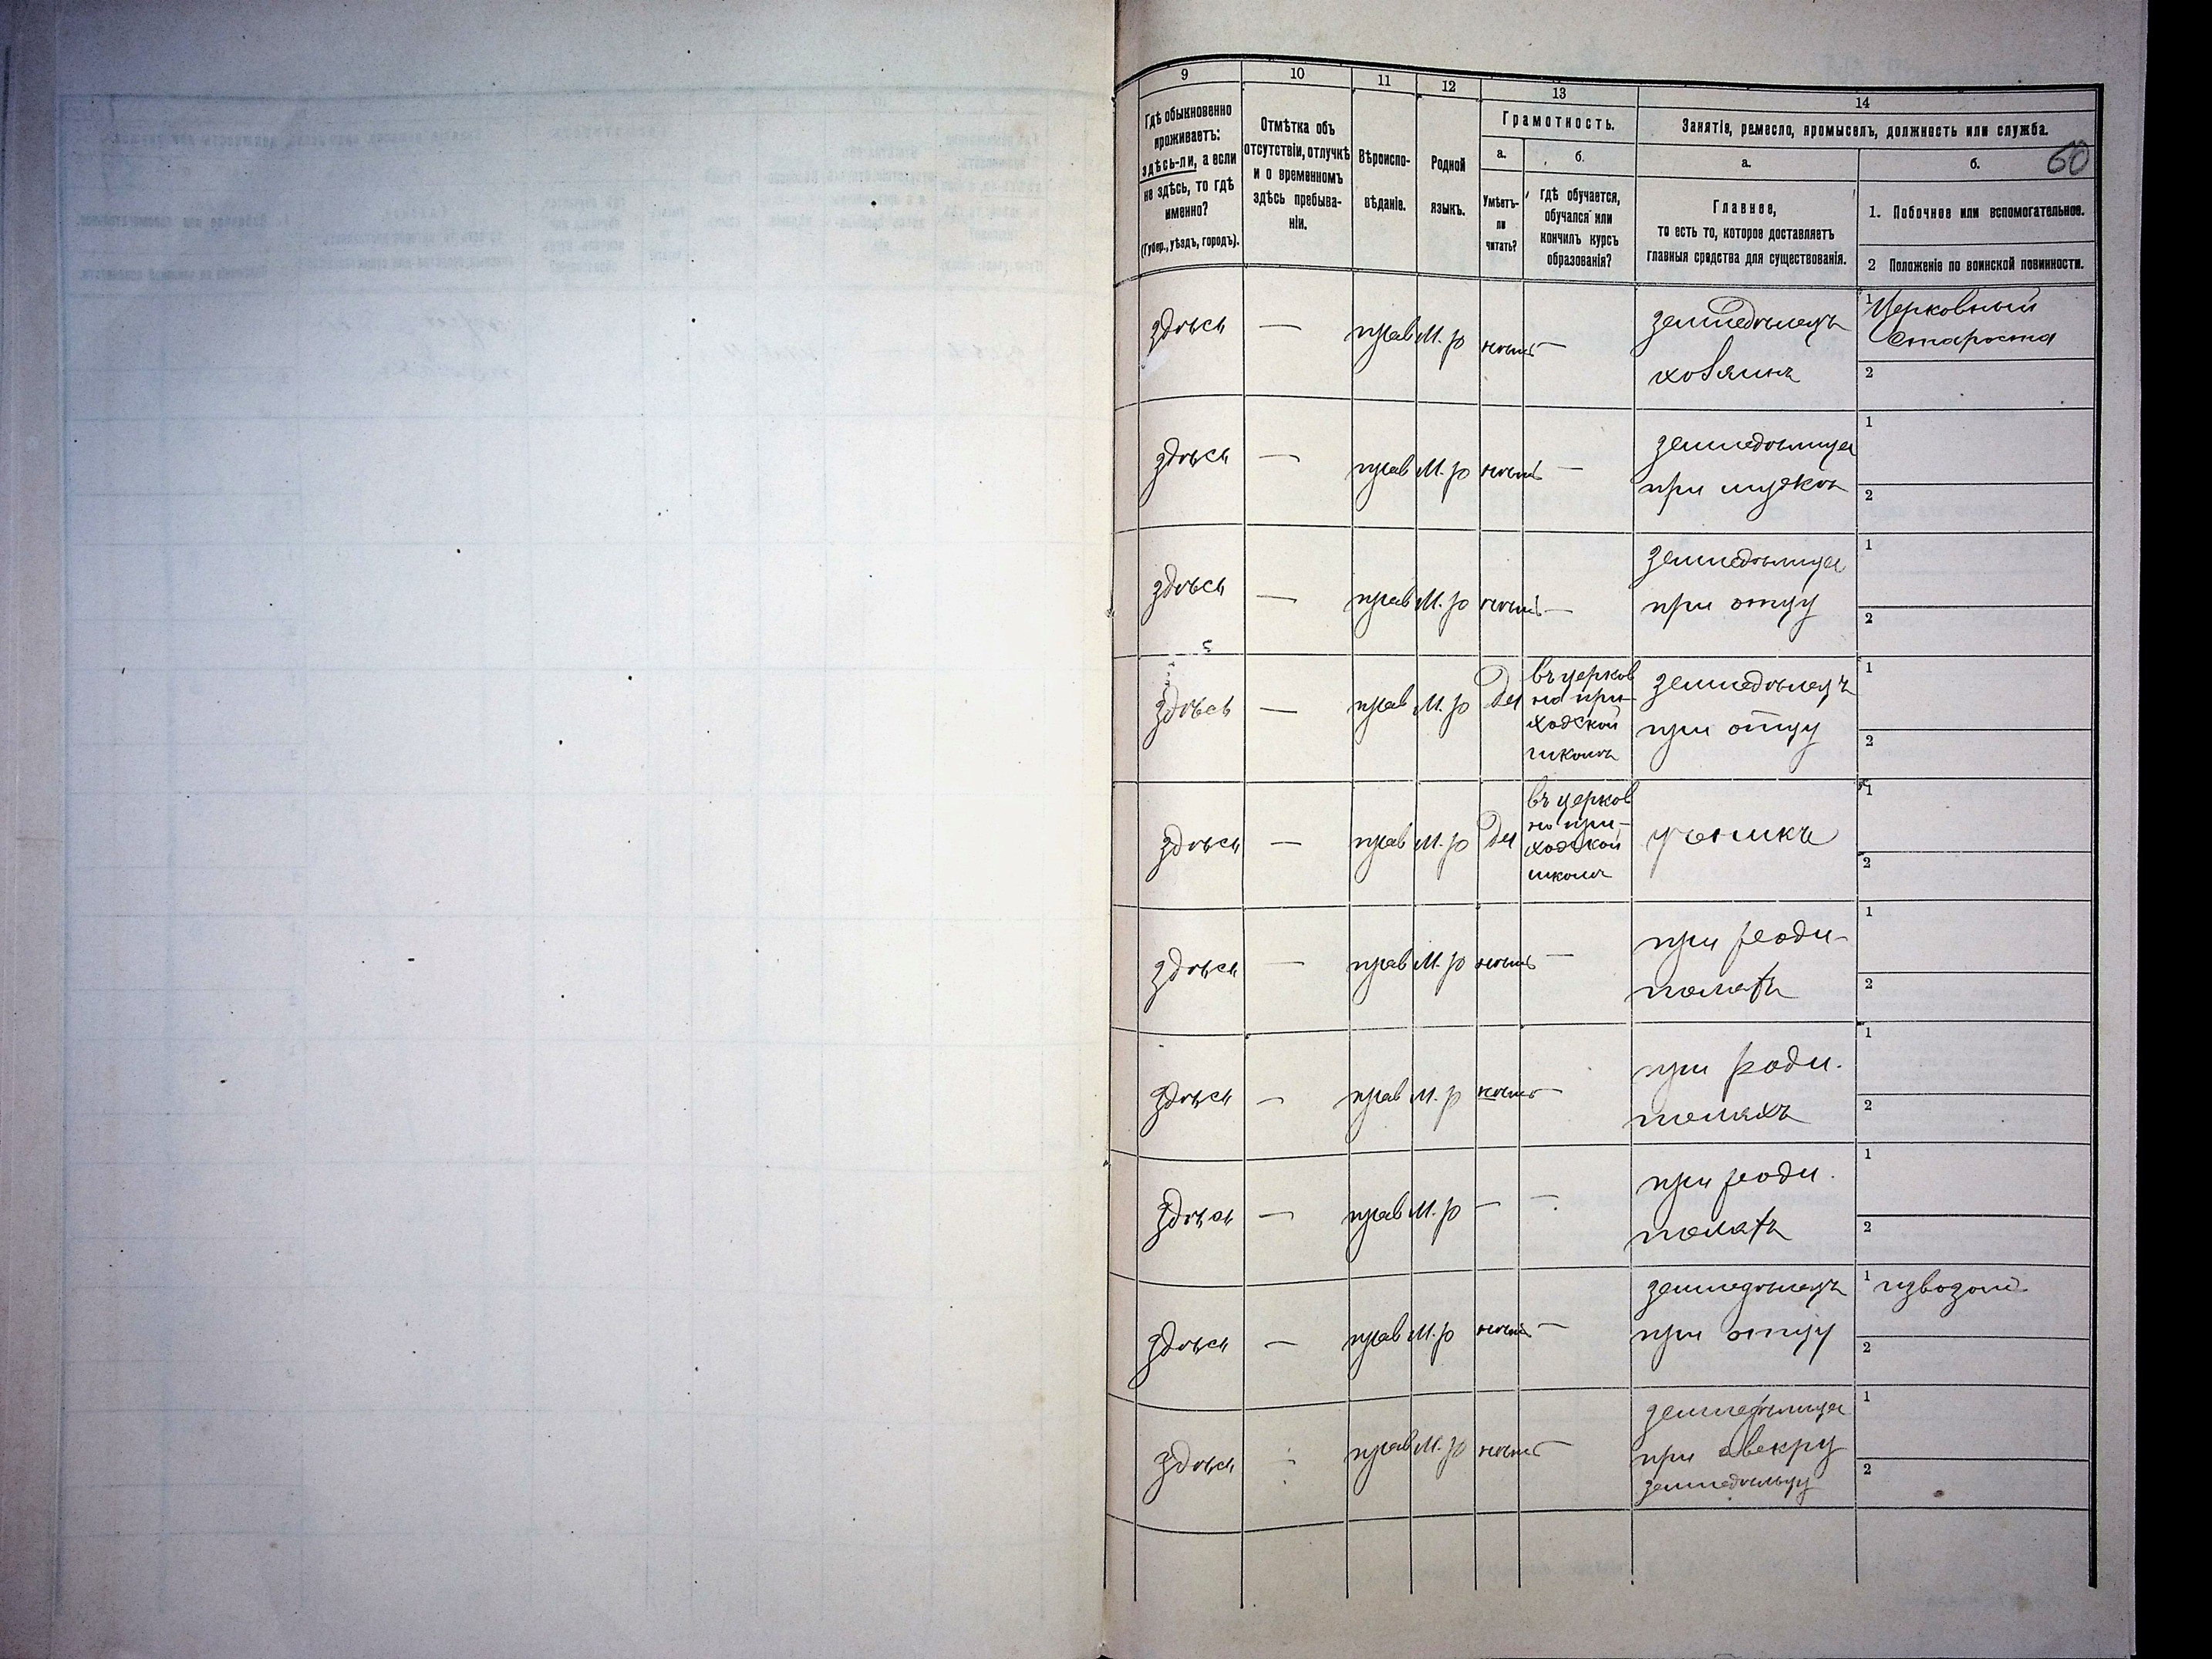 9 10 11 12 13 14
60
Гдѣ обыкновенно
проживаетъ:
здѣсь-ли, а если
не здѣсь, то гдѣ
именно?
(Губер., уѣздъ, городъ).
Отмѣтка объ
отсутствіи, отлучкѣ
и о временномъ
здѣсь пребыва-
ніи.
Вѣроиспо-
вѣданіе.
Родной
языкъ.
Грамотность.
а.
Умѣетъ-
ли
читать?
б.
гдѣ обучается,
обучался или
кончилъ курсъ
образованія?
Занятіе, ремесло, промыселъ, должность или служба.
а.
Главное,
то есть то, которое доставляетъ
главныя средства для существованія.
б.
1. Побочное или вспомогательное.
2 Положеніе по воинской повинности.
здѣсь — прав М. р нѣтъ —
земледѣлецъ
хозяинъ
1 Церковный
староста
2
здѣсь — прав М. р нѣтъ —
земледѣлица
при мужѣ
1
2
здѣсь — прав М. р нѣтъ —
земледѣлица
при отцу
1
2
здѣсь — прав М. р да
въ церков
но при-
ходской
школѣ
земледѣлецъ
при отцу
1
2
здѣсь — прав М. р да
въ церков
но при-
ходской
школѣ
ученикъ
1
2
здѣсь — прав М. р нѣтъ —
при роди-
теляхъ
1
2
здѣсь — прав М. р нѣтъ —
при роди-
теляхъ
1
2
здѣсь — прав М. р — —
при роди-
теляхъ
1
2
здѣсь — прав М. р нѣтъ —
земледѣлецъ
при отцу
1 извозом
2
здѣсь — прав М. р нѣтъ —
земледѣлица
при свекру
земледѣльцу
1
2